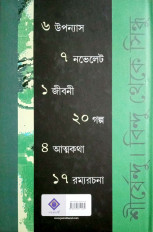 ৬ উপন্যাস
৭ নভেলেট
১ জীবনী
২০ গল্প
৪ আত্মকথা
১৭ রম্যরচনা
শীর্ষেন্দু। বিন্দু থেকে সিন্ধু